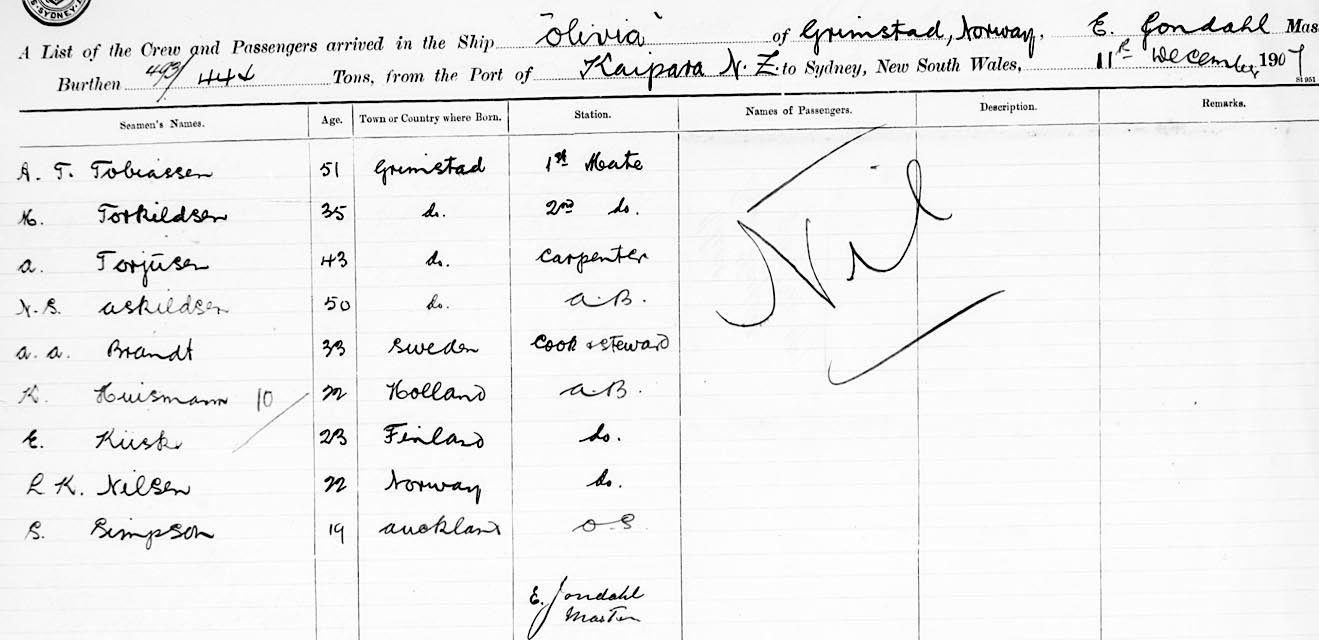 SYDNEY
A List of the Crew and Passengers arrived in the Ship "Olivia" of Grimstad, Norway, E. Jondahl Mas
Burthen 493/444 Tons, from the Port of Kaipara N.Z. to Sydney, New South Wales, 11th December, 1907
S1951
Seamen's Names. Age. Town or Country where Born. Station. Names of Passengers. Description. Remarks.
A. T. Tobiassen 51 Grimstad 1st Mate
M. Torkildsen 35 do. 2nd do.
A. Torjusen 43 do. Carpenter
N. S. Askildsen 50 do. A.B.
A. A. Brandt 33 Sweden Cook & Steward
K. Huismann 10 22 Holland A.B.
E. Kusk 23 Finland do.
L K. Nilsen 22 Norway do.
S. Simpson 19 Auckland O S
Nil
E. Jondahl
Master